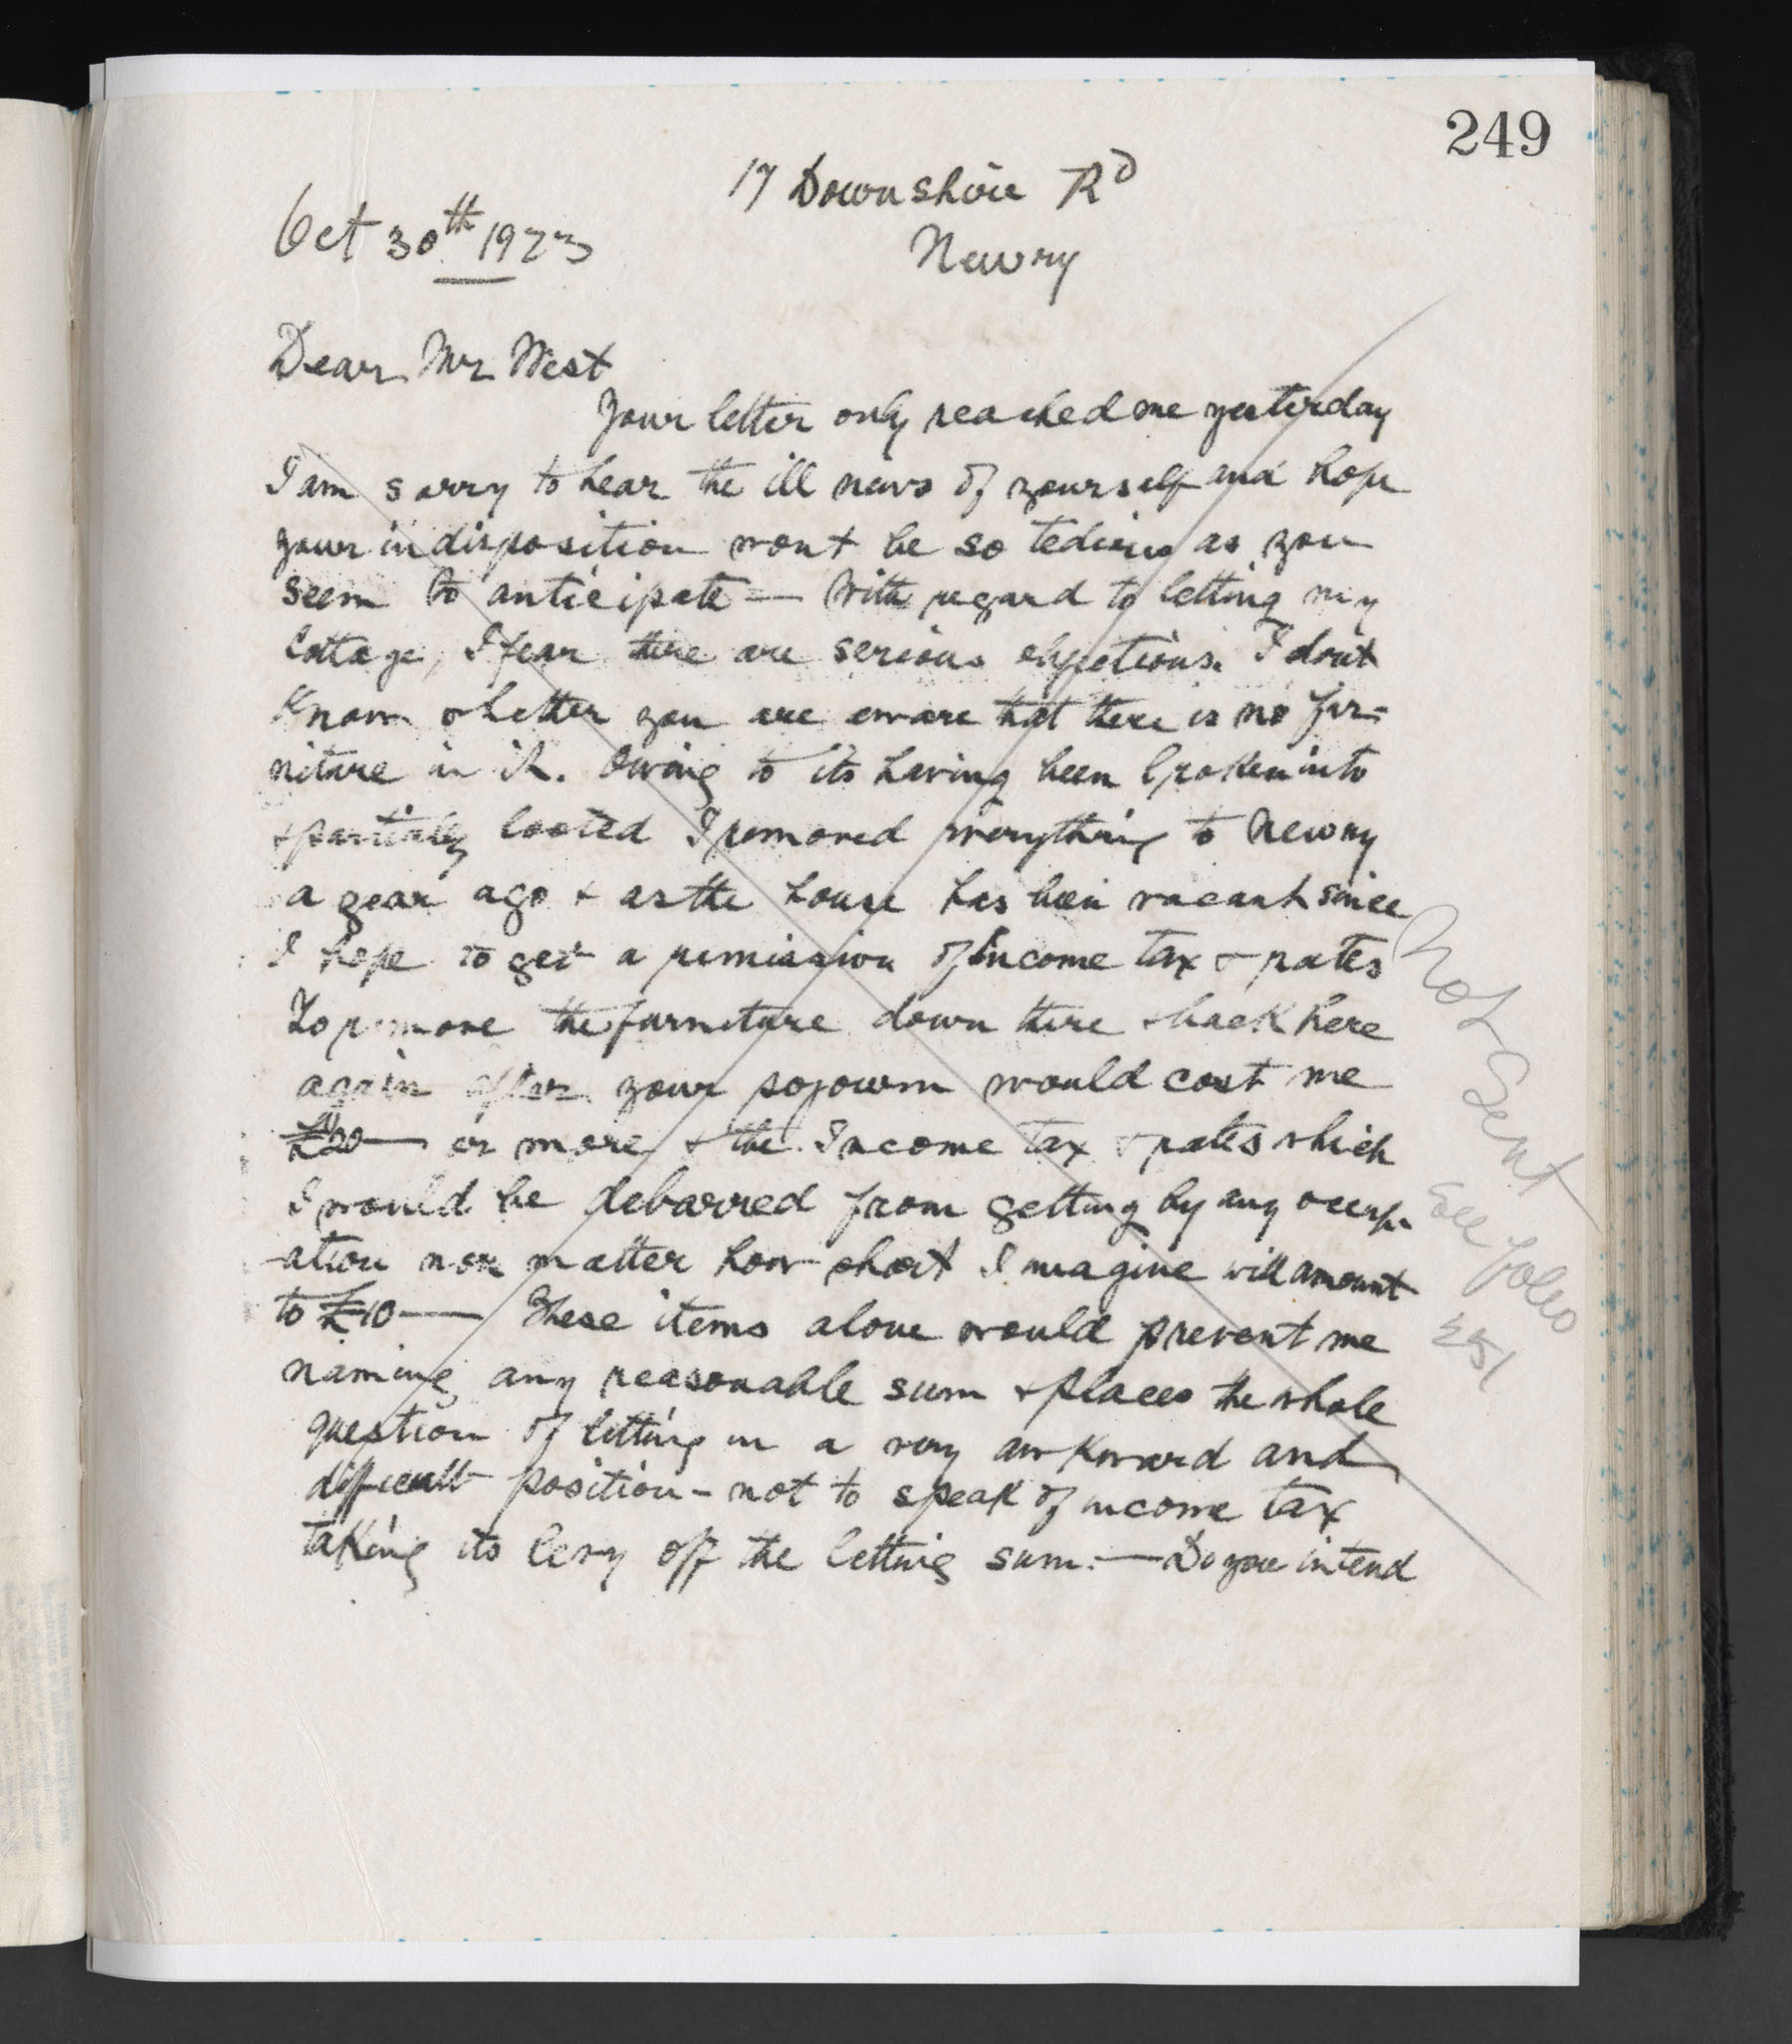 249
17 Downshire Rd
Oct 30th 1923
Newry
Dear Mr West
Your letter only reached me yesterday
I am sorry to hear the ill news of yourself and hope
your indisposition wont be so tedious as you
seem to anticipate — With regard to letting my
Cottage, I fear there are serious objections. I don't
Know whether you are aware that there is no fur-
niture in it. Owing to its having been broken into
& partially looted I removed everything to Newry
a year ago & as the house has been vacant since
I hope to get a remission of Income tax & rates
To remove the furniture down there & back here
again after your sojourn would cost me
£20 — or more & the Income Tax & rates which
I would be debarred from getting by any occup-
-ation nor matter how short I imagine will amount
to £10 — These items alone would prevent me
naming any reasonable sum & places the whole
question of letting in a very awkward and
difficult position - not to speak of income tax
taking its levy off the letting sum. — Do you intend
Not Sent
See folio
251